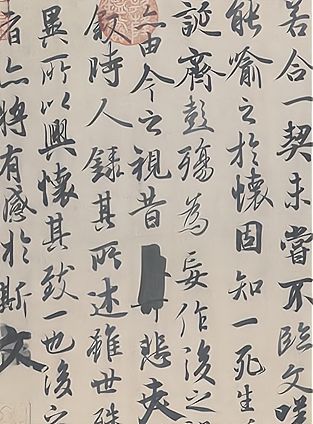 若合一契未嘗不臨文嗟
能喻之於懷固知一死生
誕齊彭殤為妄作後之
亦由今之視昔悲夫
敘時人錄其所述雖世殊
異所以興懷其致一也後
者亦將有感於斯文